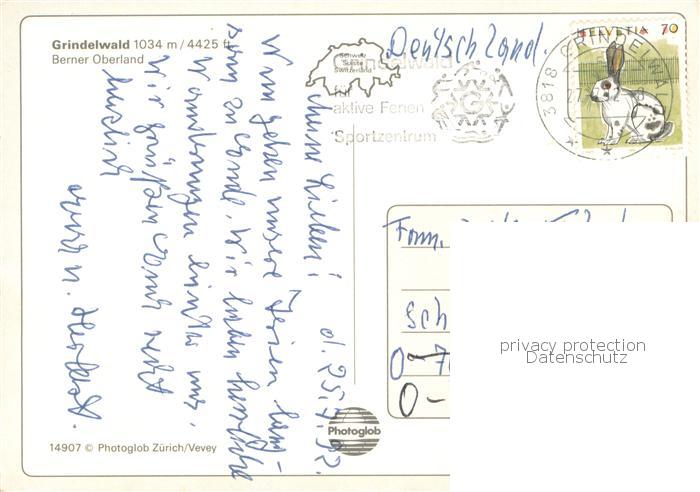 Grindelwald 1034 m / 4425 ft
Berner Oberland
Deutschland.
HELVETIA 70
3818 GRINDELWALD
Schweiz
Suisse
Switzerland
Grindelwald
für
aktive Ferien
Sportzentrum
d. 25.7.92.
Meine Lieben!
Nun gehen unsere Ferien lang-
sam zu Ende. Wir haben herrliche
Wanderungen hinter uns.
Wir grüßen Euch recht
herzlich
u.
Fam.
Sch
O-70
O-
privacy protection
Datenschutz
Photoglob
14907 © Photoglob Zürich/Vevey